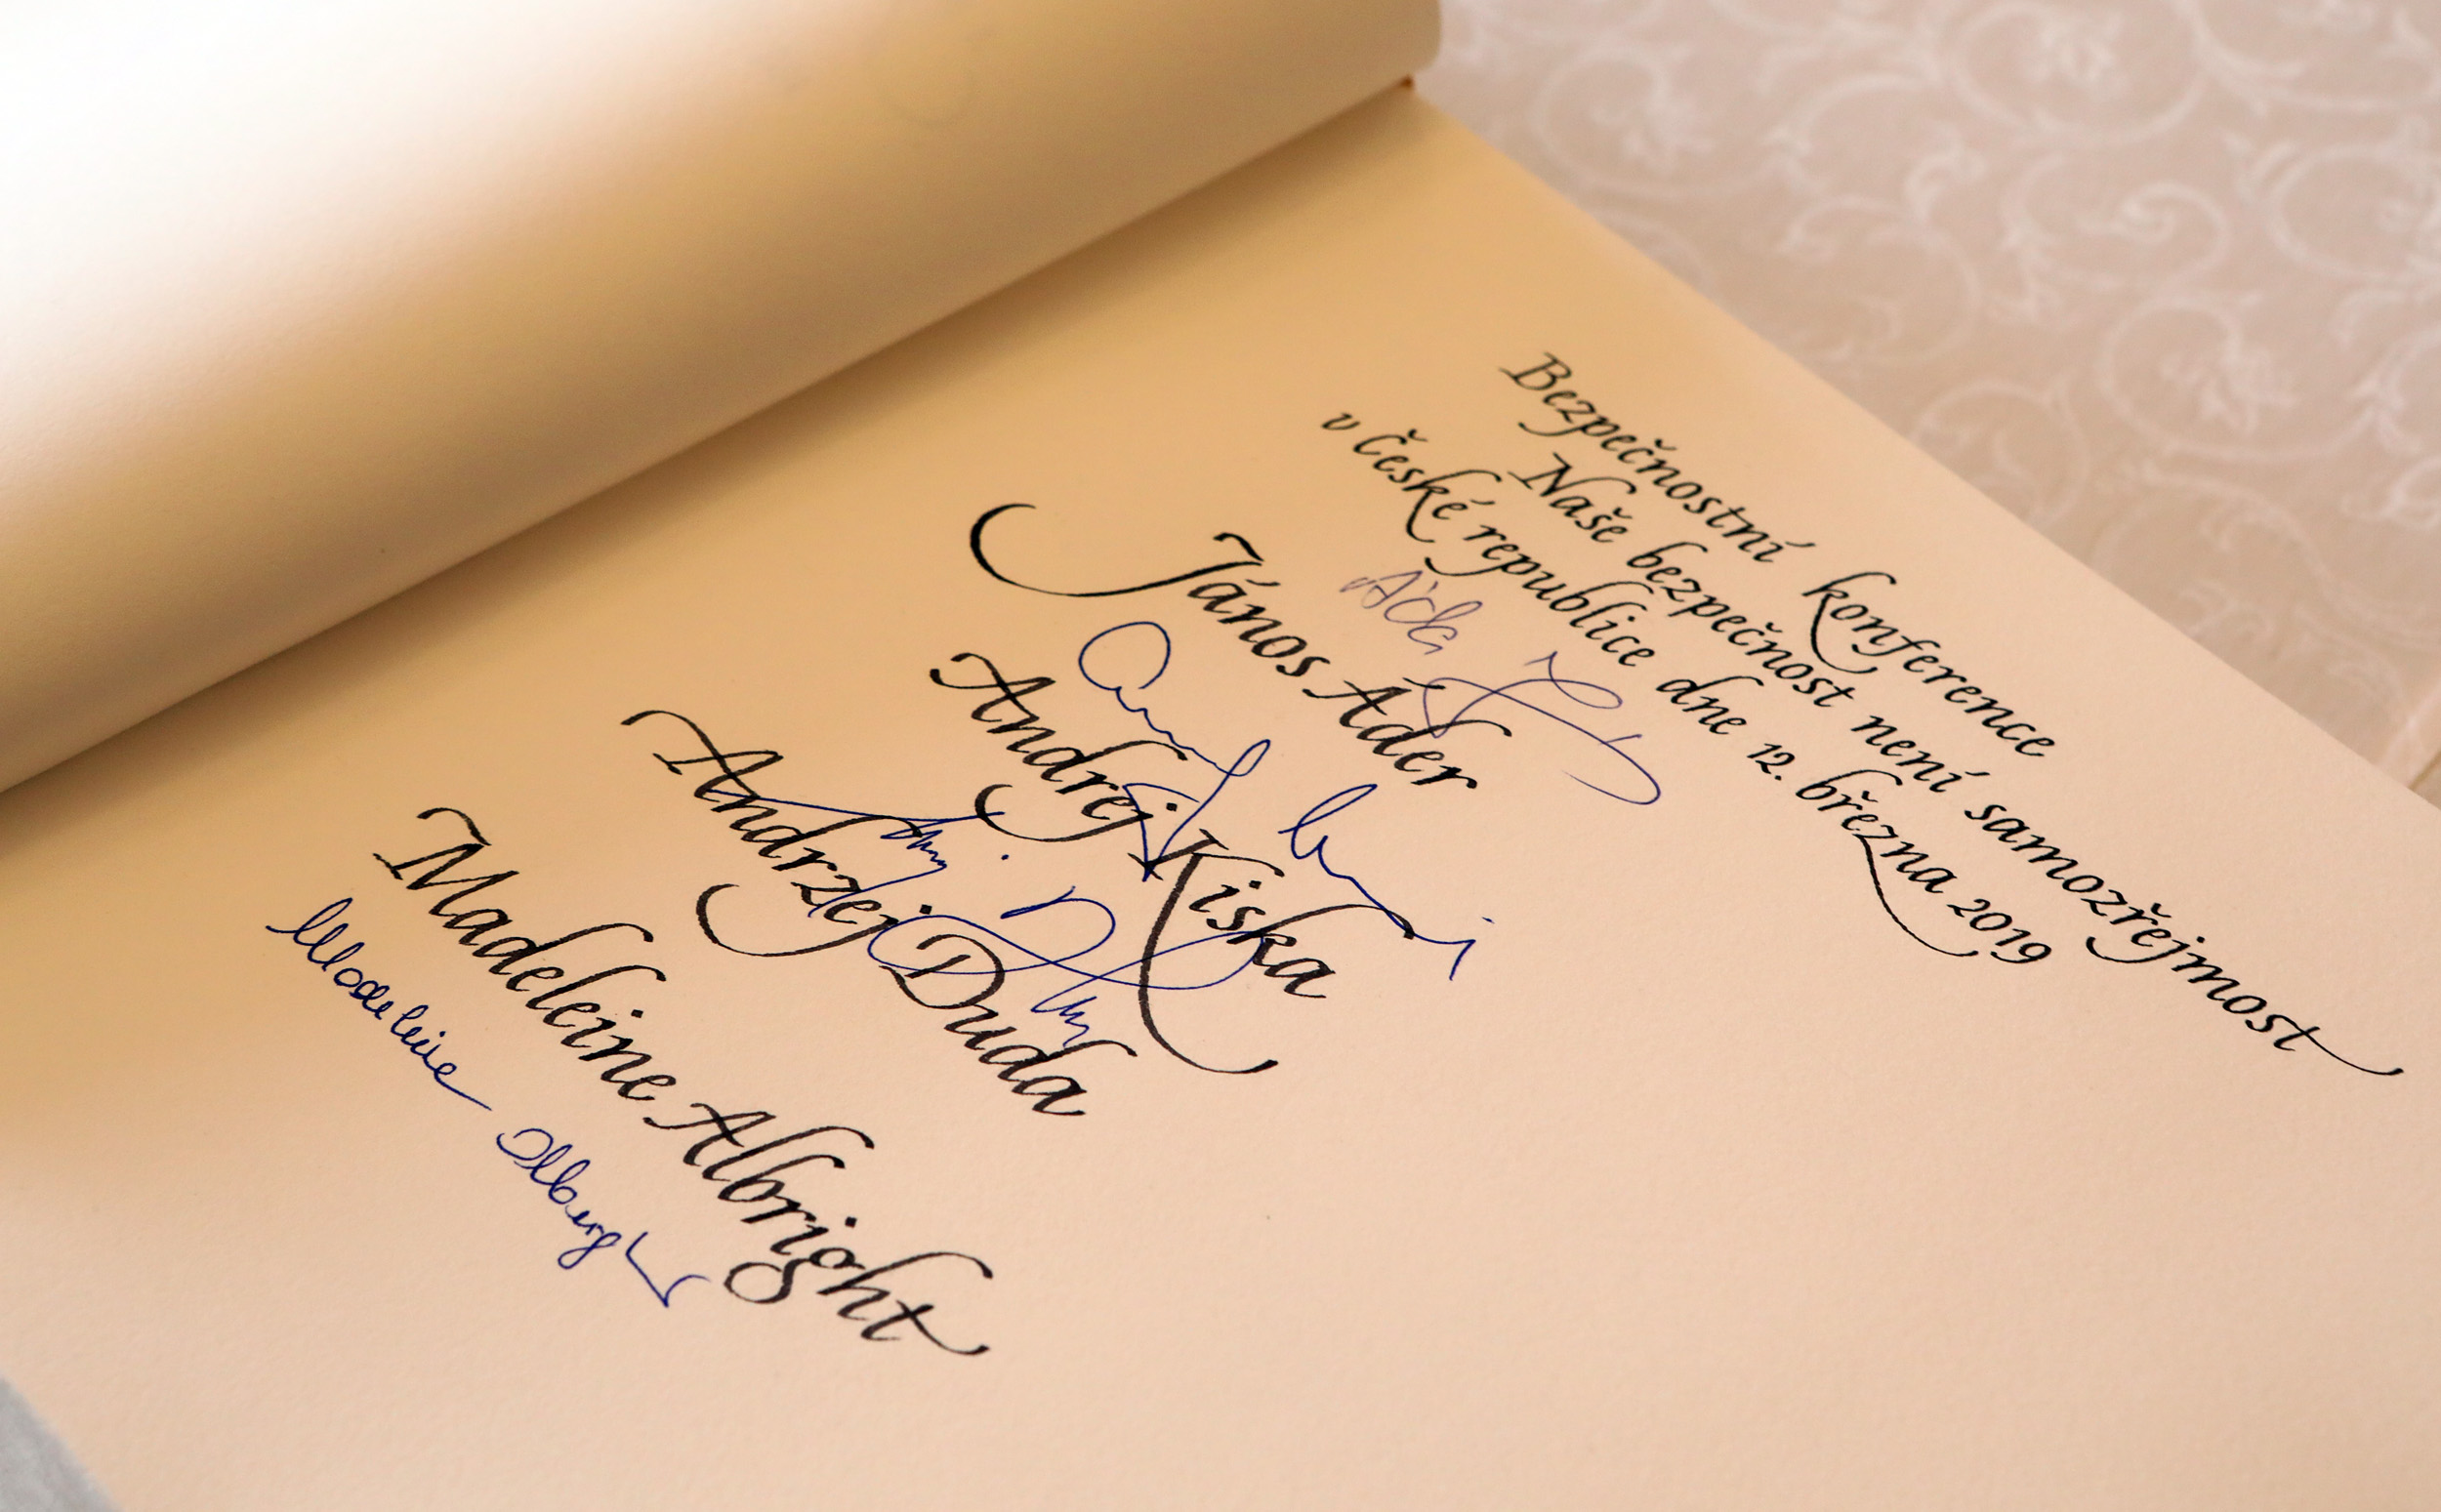 Bezpečnostní konference
Naše bezpečnost není samozřejmost
v České republice dne 12. března 2019
János Áder
Andrej Kiska
Andrzej Duda
Madeleine Albright
Madeleine Albright